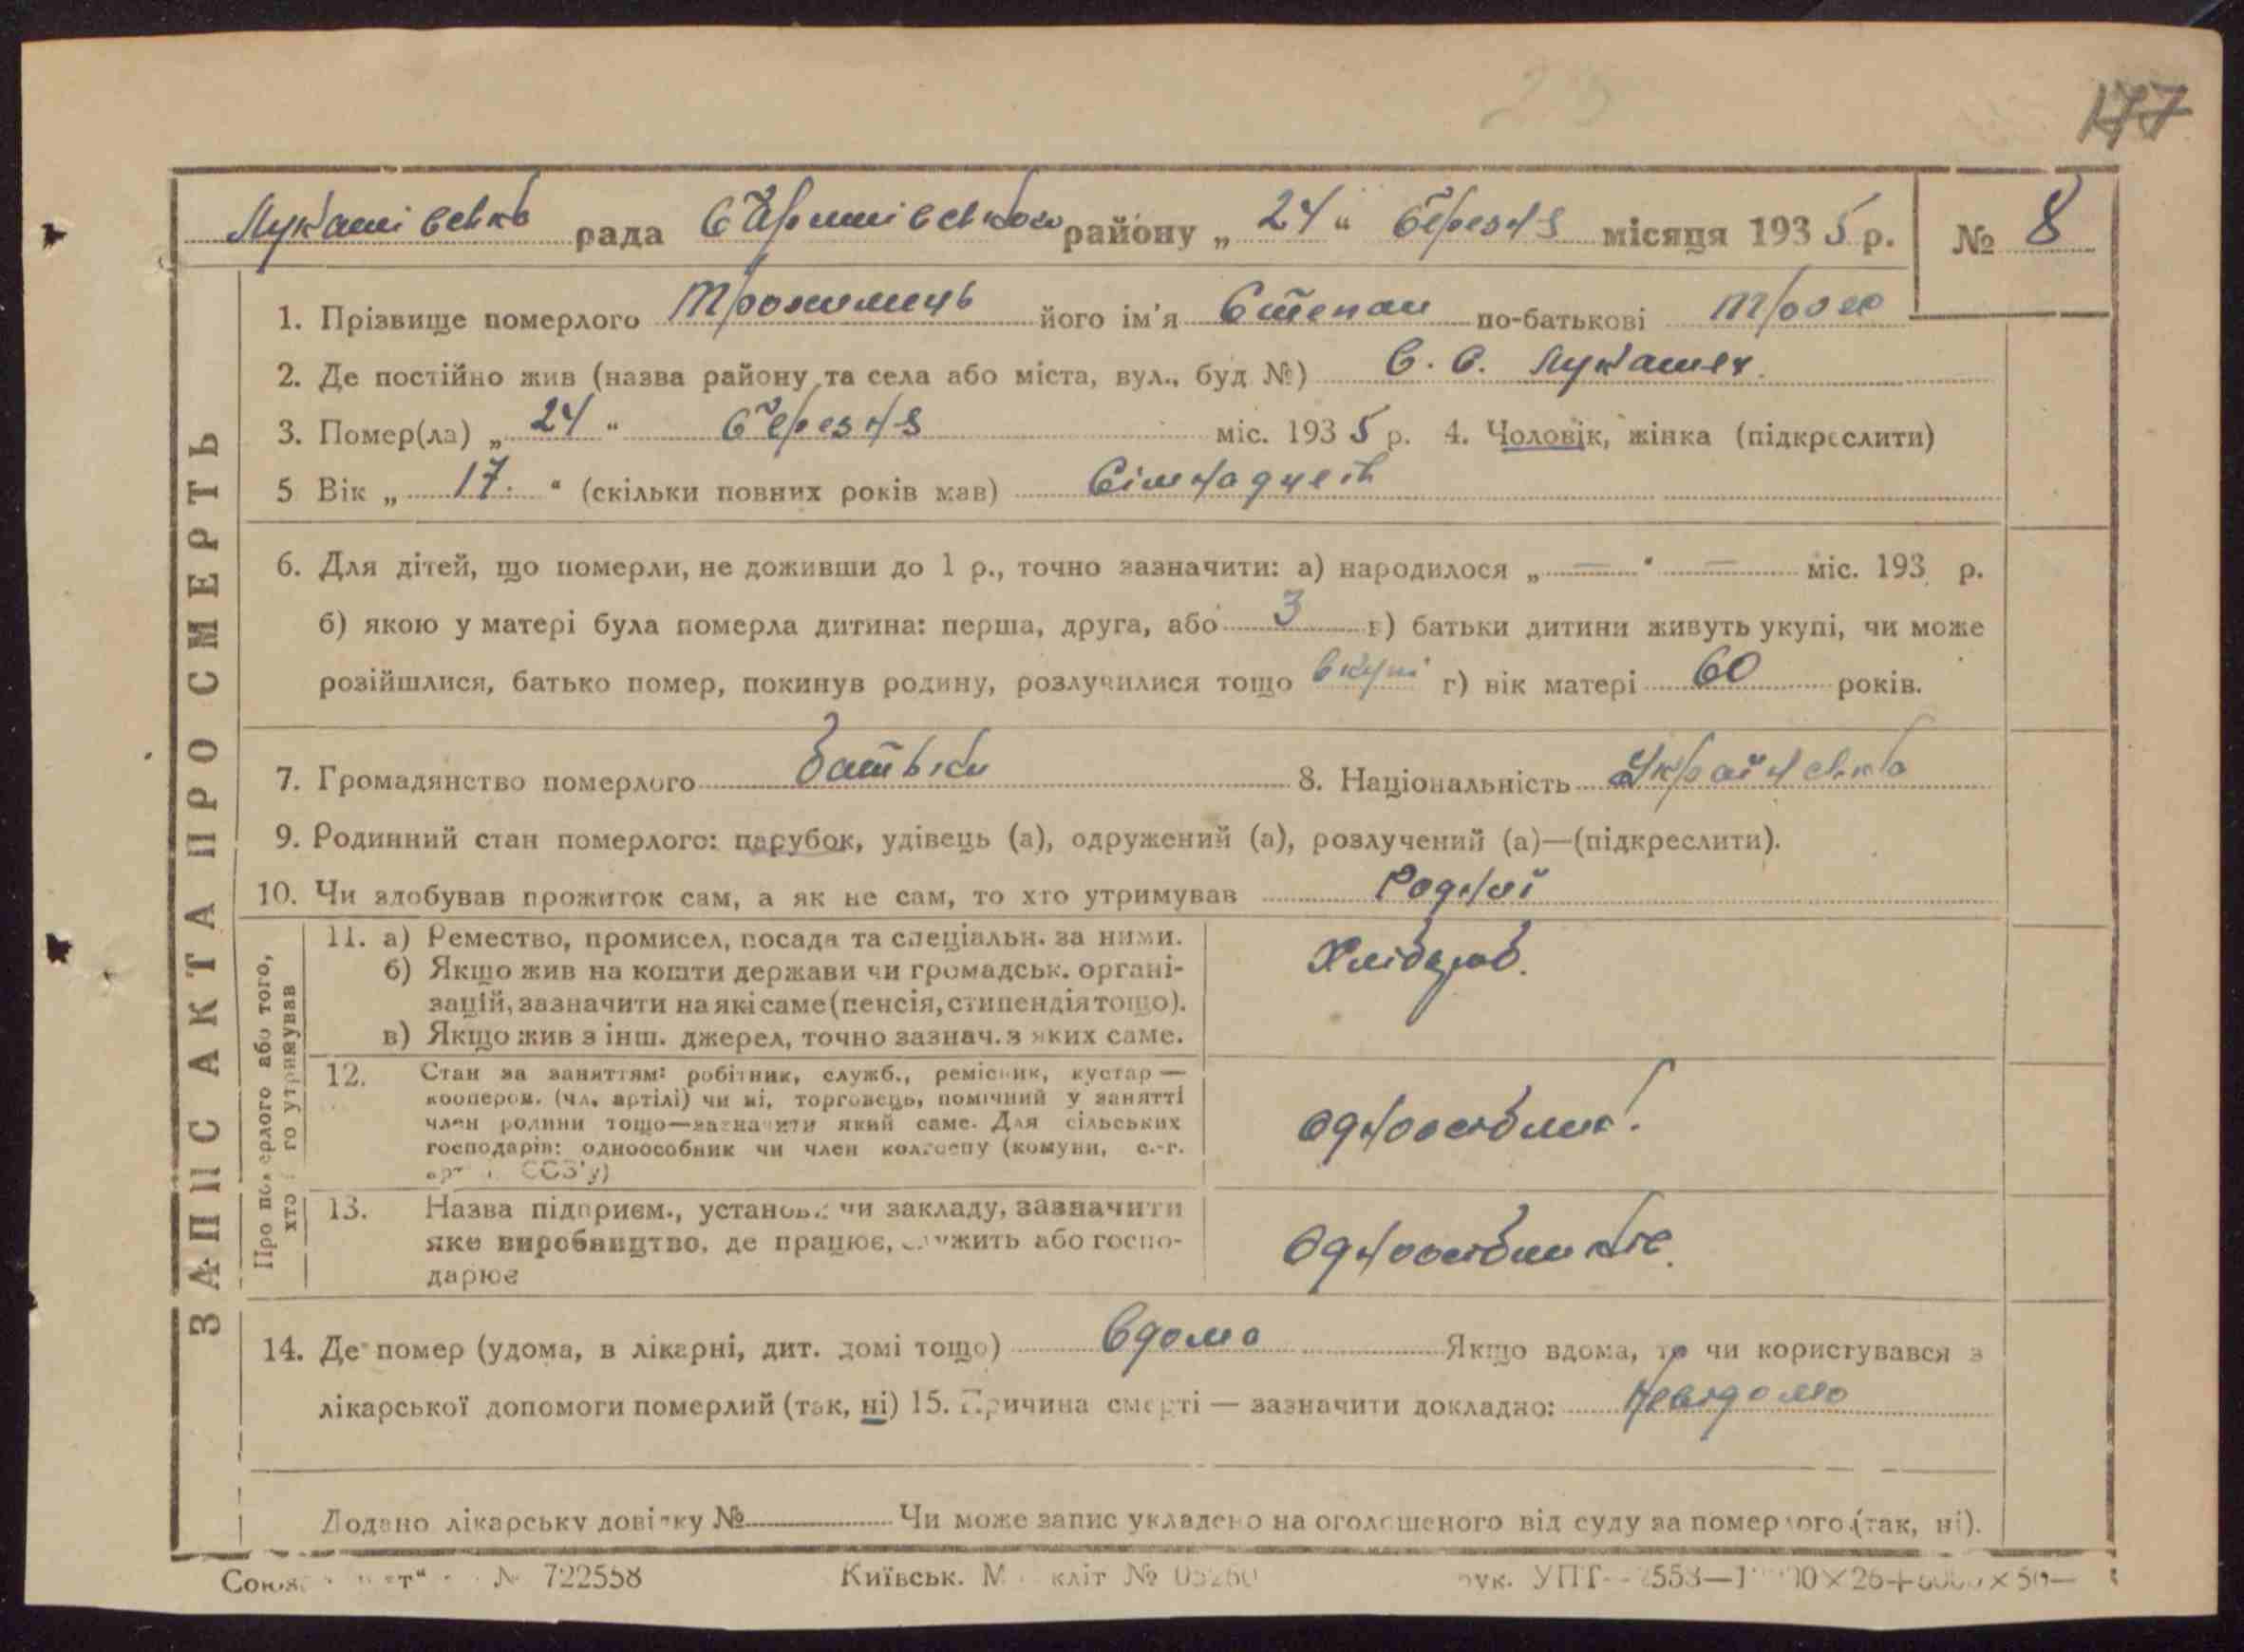 177
Лукашівська рада району „ 24 " березня місяця 193 5 р. № 8
ЗАПИС АКТА ПРО СМЕРТЬ
1. Прізвище померлого його ім'я Степан по-батькові
2. Де постійно жив (назва району та села або міста, вул., буд №) С. С. Лукашев.
3. Помер(ла) „ 24 " березня міс. 193 5 р. 4. Чоловік, жінка (підкреслити)
5 Вік „ 17. " (скільки повних років мав) Сімнадцеть
6. Для дітей, що померли, не доживши до 1 р., точно зазначити: а) народилося „ — " — міс. 193 р.
б) якою у матері була померла дитина: перша, друга, або 3 в) батьки дитини живуть укупі, чи може
розійшлися, батько помер, покинув родину, розлучилися тощо вкупі г) вік матері 60 років.
7. Громадянство померлого батьки 8. Національність Українська
9. Родинний стан померлого: парубок, удівець (а), одружений (а), розлучений (а)—(підкреслити).
10. Чи здобував прожиток сам, а як не сам, то хто утримував Родної
Про померлого або того,
хто його утримував
11. а) Ремество, промисел, посада та спеціальн. за ними.
б) Якщо жив на кошти держави чи громадськ. органі-
зацій, зазначити на які саме (пенсія, стипендія тощо).
в) Якщо жив з інш. джерел, точно зазнач. з яких саме.
Хлібороб.
12. Стан за заняттям: робітник, служб., ремісник, кустар —
кооперов. (чл. артілі) чи ні, торговець, помічний у занятті
член родини тощо—зазначити який саме. Для сільських
господарів: одноособник чи член колгоспу (комуни, с.-г.
СОЗ'у)
Одноособник.
13. Назва підприєм., установи чи закладу, зазначити
яке виробництво, де працює, служить або госпо-
дарює
14. Де помер (удома, в лікарні, дит. домі тощо) вдома Якщо вдома, то чи користувався з
лікарської допомоги померлий (так, ні) 15. Причина смерті — зазначити докладно: Невідомо
Додано лікарську довідку № Чи може запис укладено на оголошеного від суду за померлого (так, ні).
№ 722558 Київськ. УПТ